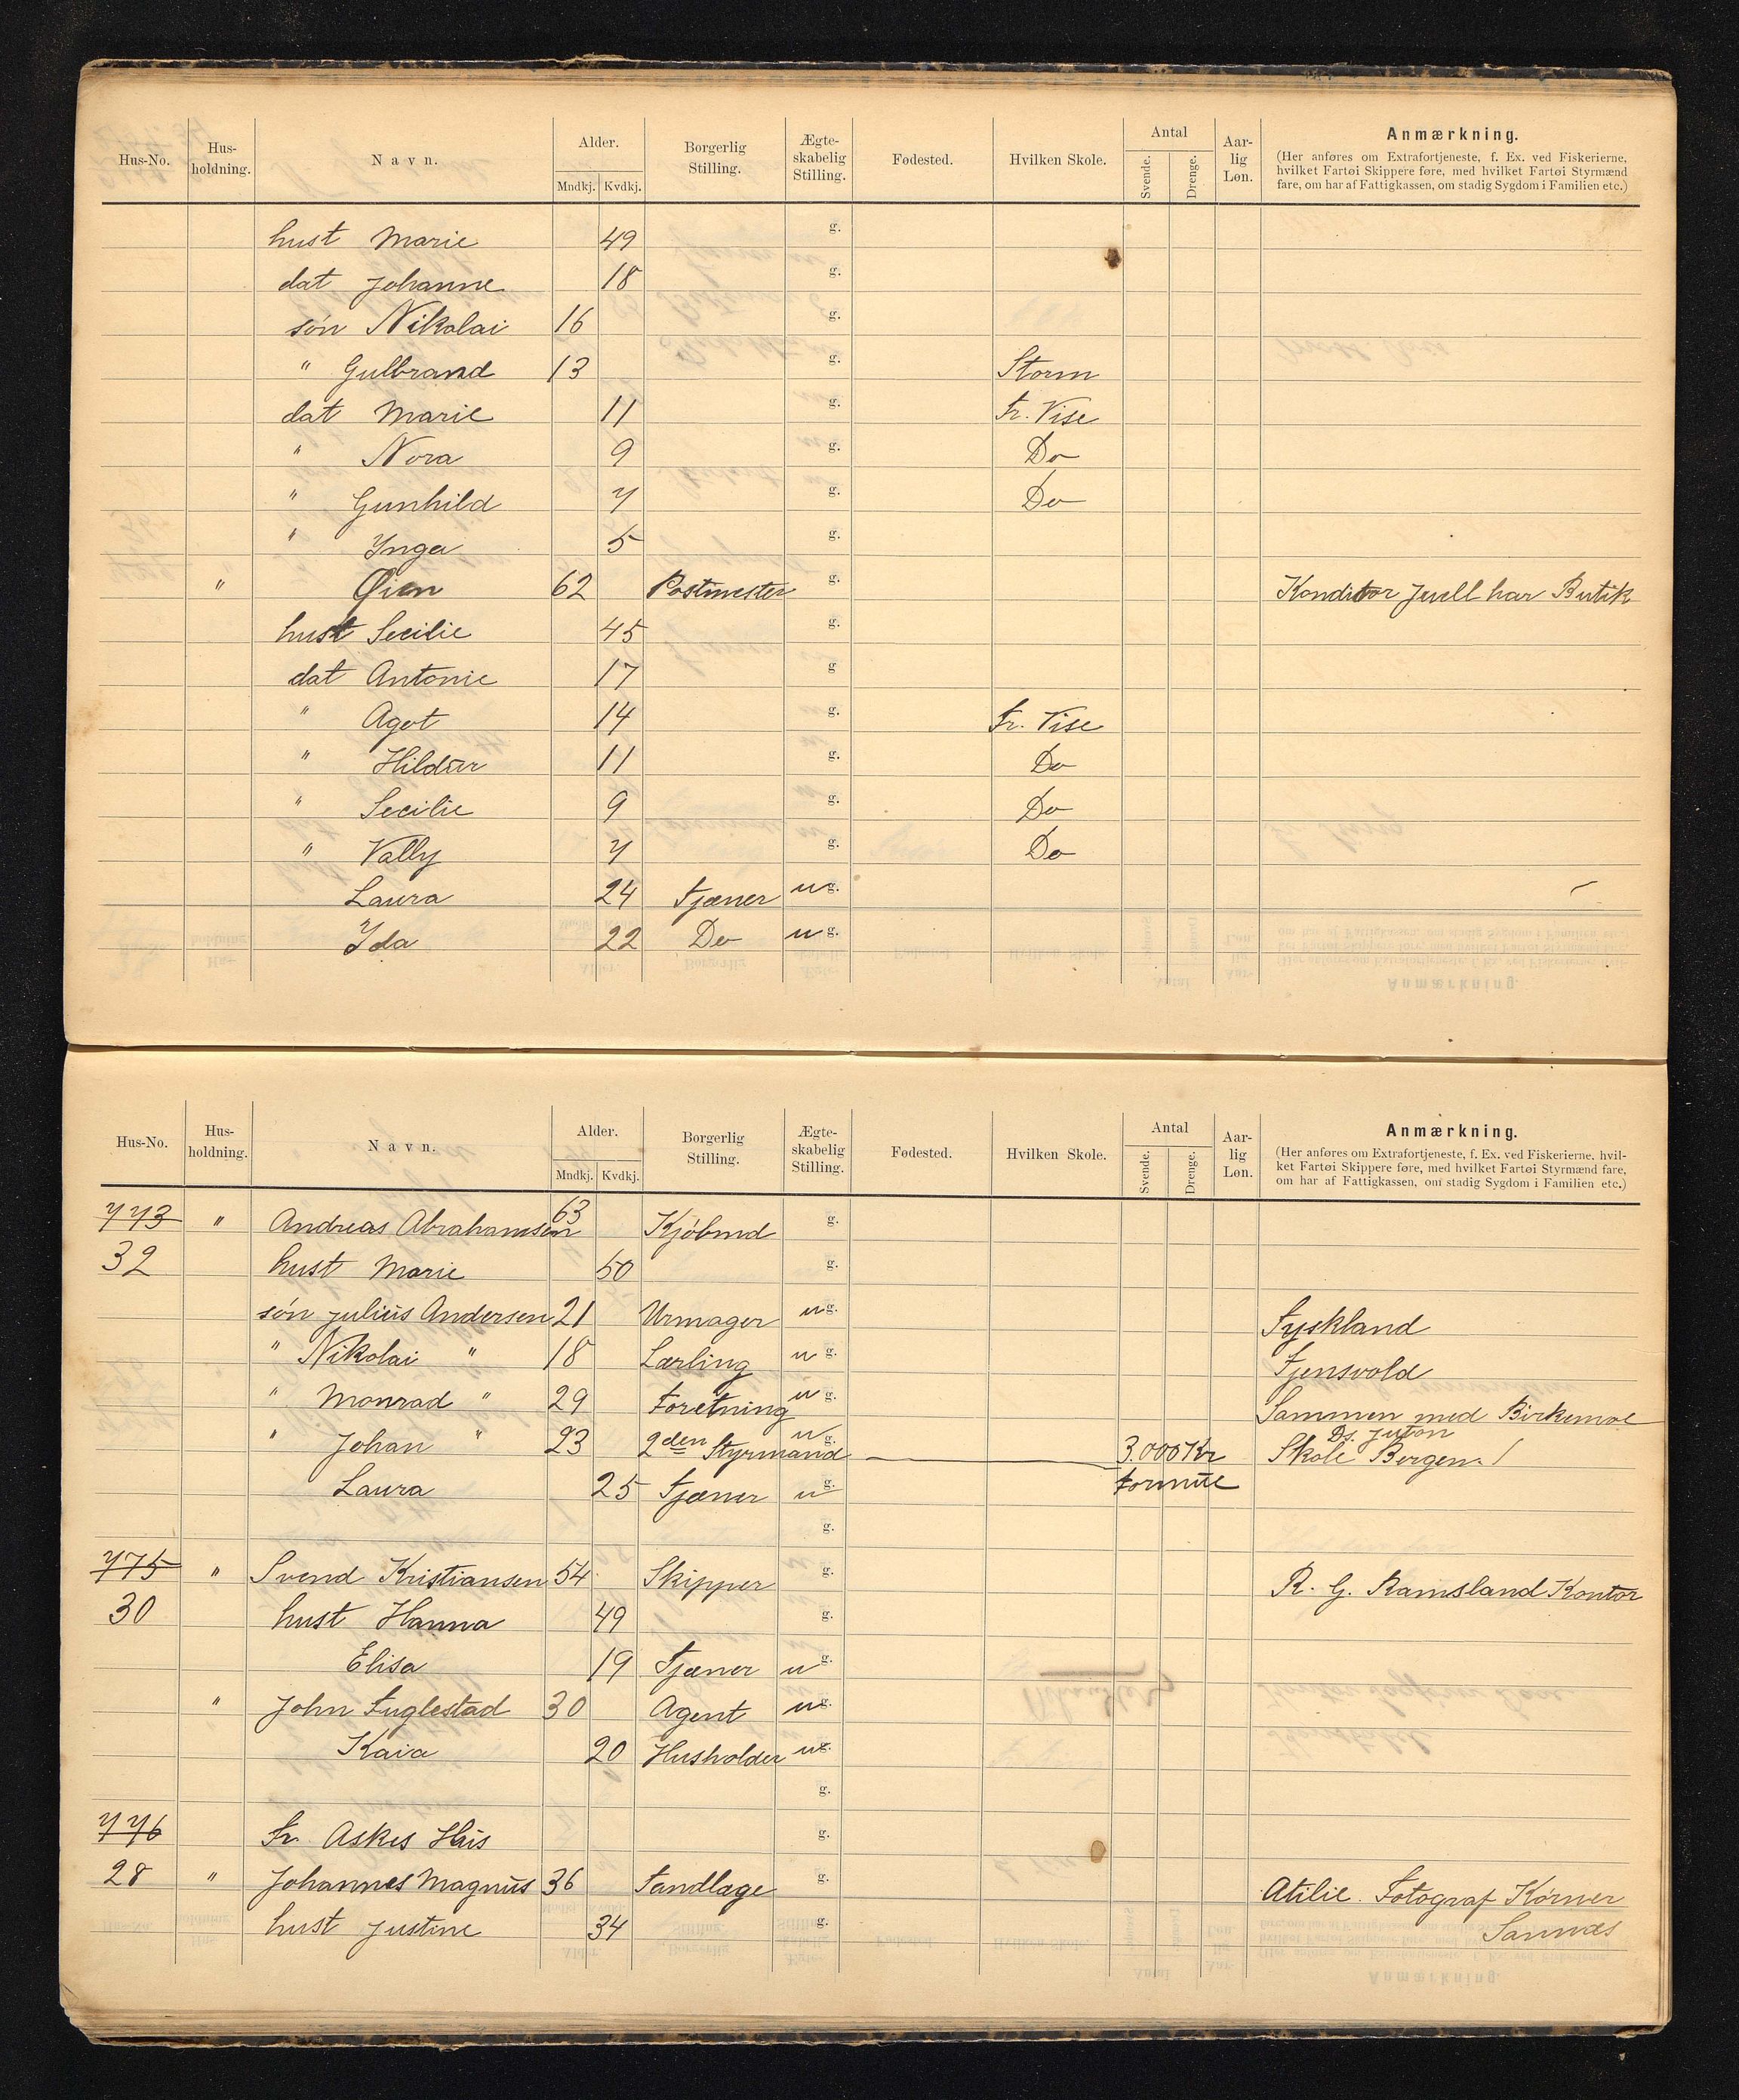 Hus-No. Hus-holdning. Navn. Alder. Mndkj. Kvdkj. Borgerlig Stilling. Ægte-skabelig Stilling. Fødested. Hvilken Skole. Antal Svende. Drenge. Aar-lig Løn. Anmærkning.
(Her anføres om Extrafortjeneste, f. Ex. ved Fiskerierne,
hvilket Fartøi Skippere føre, med hvilket Fartøi Styrmænd
fare, om har af Fattigkassen, om stadig Sygdom i Familien etc.)
hust Marie 49 g.
dat Johanne 18 g.
søn Nikolai 16 g.
" Gulbrand 13 g. Storm
dat Marie 11 g. Fr. Vise
" Nora 9 g. Do
" Gunhild 7 g. Do
" Inga 5 g.
" Øien 62 Postmester g. Konditor Juell har Butik
hust Secilie 45 g.
dat Antonie 17 g
" Agot 14 g. Fr. Vise
" Hildur 11 g. Do
" Secilie 9 g. Do
" Vally 7 g. Do
Laura 24 Tjæner u g.
Ida 22 Do u g.
Hus-No. Hus-holdning. Navn. Alder. Mndkj. Kvdkj. Borgerlig Stilling. Ægte-skabelig Stilling. Fødested. Hvilken Skole. Antal Svende. Drenge. Aar-lig Løn. Anmærkning.
(Her anføres om Extrafortjeneste, f. Ex. ved Fiskerierne, hvil-
ket Fartøi Skippere føre, med hvilket Fartøi Styrmænd fare,
om har af Fattigkassen, om stadig Sygdom i Familien etc.)
773 " Andreas Abrahamsen 63 Kjøbmd g.
32 hust Marie 50
søn Julius Andersen 21 Urmager u g. Tyskland
" Nikolai " 18 Lærling u g. Tjensvold
" Monrad " 29 Foretning u g. Sammen med Birkemoe
" Johan " 23 2den Styrmand u g. 3.000 Kr Skole Bergen
Laura 25 Tjæner u g. Formue
g.
775 " Svend Kristiansen 54 Skipper g. R. G. Ramsland Kontor
30 hust Hanna 49 g.
Elisa 19 Tjæner u g.
" John Fuglestad 30 Agent u g.
Kaia 20 Husholder u g.
g.
776 Fr. Askes Hus g.
28 " Johannes Magnus 36 Tandlæge g. Atilie. Fotograf Kørner
hust Justine 34 g. Sannæs